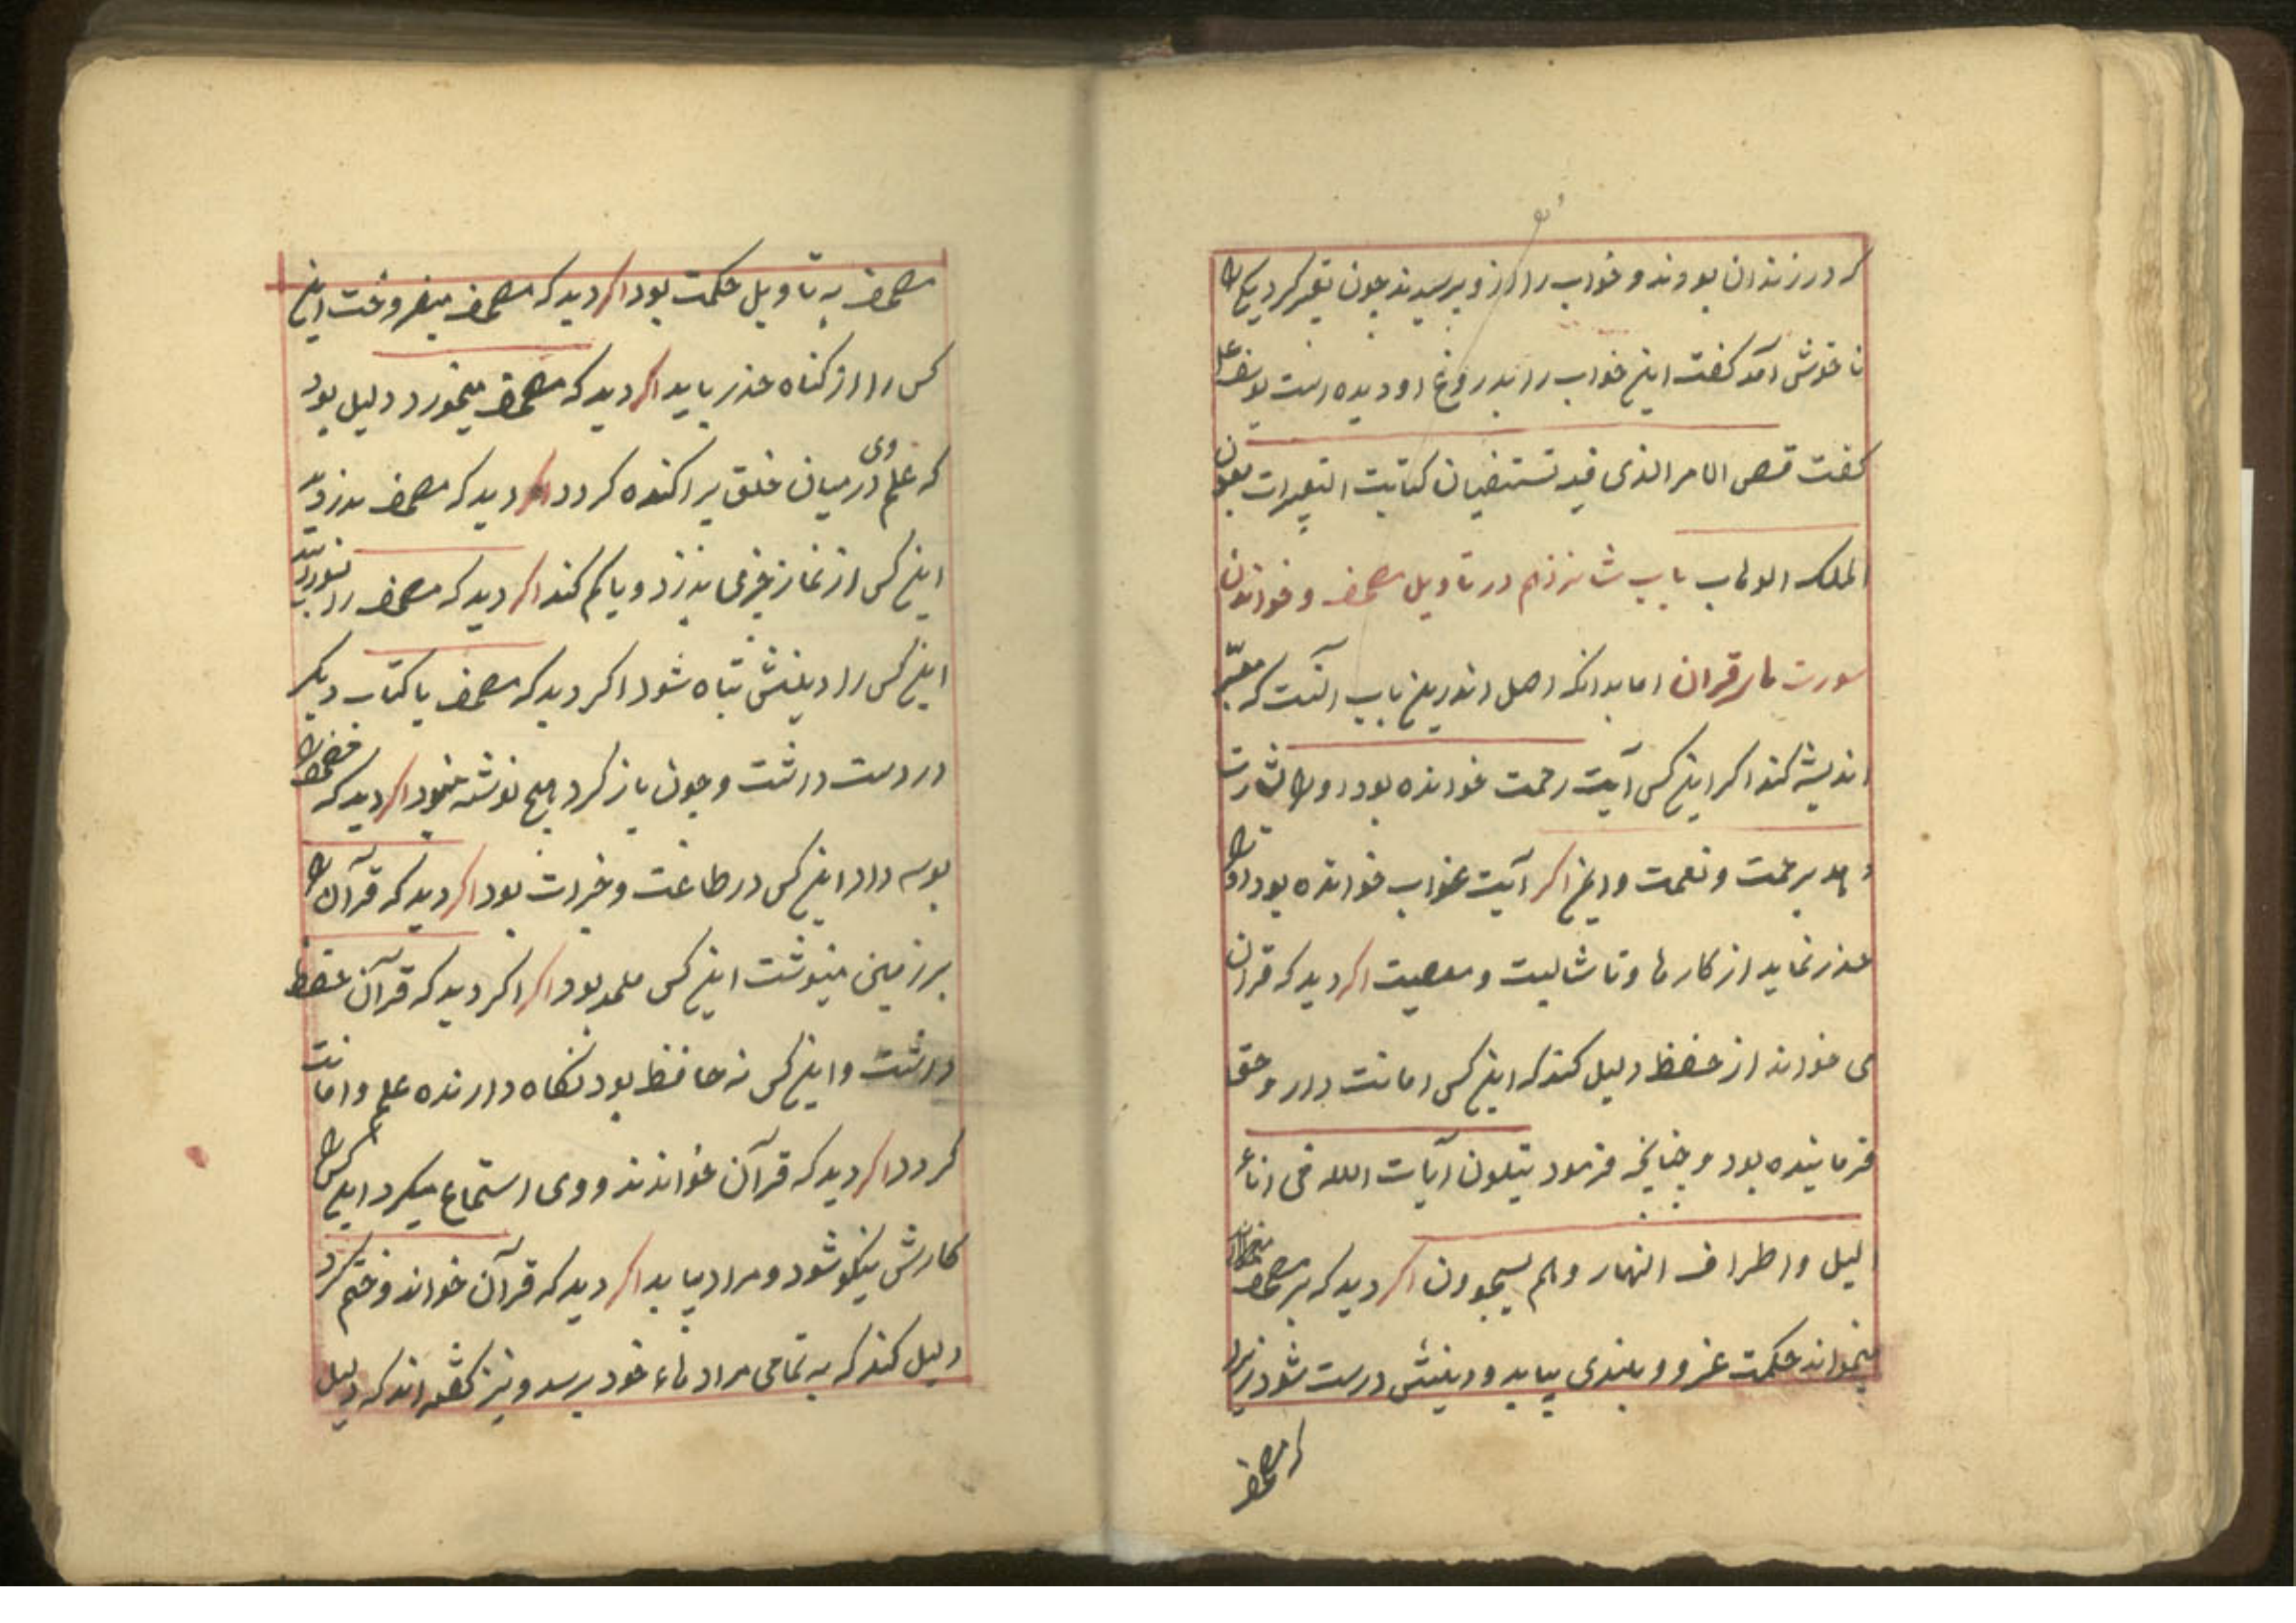 که در زندان بودند و خواب را از و پرسیدند چون تعبیر کرد یکی را
ناخوش آمد گفت این خواب را بدروغ او دیده است یوسف علی
گفت قضی الامر الذی فیه تستفتیان کتابت التعبیرات بعون
الملک الوهاب باب شانزدهم در تاویل مصحف و خواندن
سورت هاء قرآن اما بدانکه اصل اندرین باب آنست که معبّر
اندیشه کند اگر این کس آیت رحمت خوانده بود او را بشارت
دهد برحمت و نعمت و اگر آیت عذاب خوانده بود او را
حذر نماید از کارها و ناشایست و معصیت اگر دید که قرآن
می خواند از حفظ دلیل کند که این کس امانت دار و حق
فرماینده بود و چنانچه فرمود یتلون آیات الله فی اناء
لیل و اطراف النهار و هم یسجدون اگر دید که بر مصحف
میخواند حکمت عز و بلندی بیابد و دینش درست شود زیرا
که مصحف
مصحف به تاویل حکمت بود اگر دید که مصحف میفروخت این
کس را از گناه حذر باید اگر دید که مصحف میخورد دلیل بود
که علم وی در میان خلق پراکنده گردد اگر دید که مصحف بدزدید
این کس از نماز فرضی بدزدد و یا کم کند اگر دید که مصحف را
این کس را دینش تباه شود اگر دید که مصحف یا کتاب دیگر
در دست داشت و چون باز کرد هیچ نوشته نبود اگر دید که مصحف را
بوسه داد این کس در طاعت و خیرات بود اگر دید که قرآن را
بر زمین مینوشت این کس ملحد بود اگر اگر دید که قرآن حفظ
داشت و این کس نه حافظ بود نگاه دارنده علم و امانت
گردد اگر دید که قرآن خواندند و وی استماع میکرد این کس را
کارش نیکو شود و مراد بیابد اگر دید که قرآن خواند و ختم کرد
دلیل کند که به تمامی مرادهاء خود برسد و نیز گفته اند که دلیل